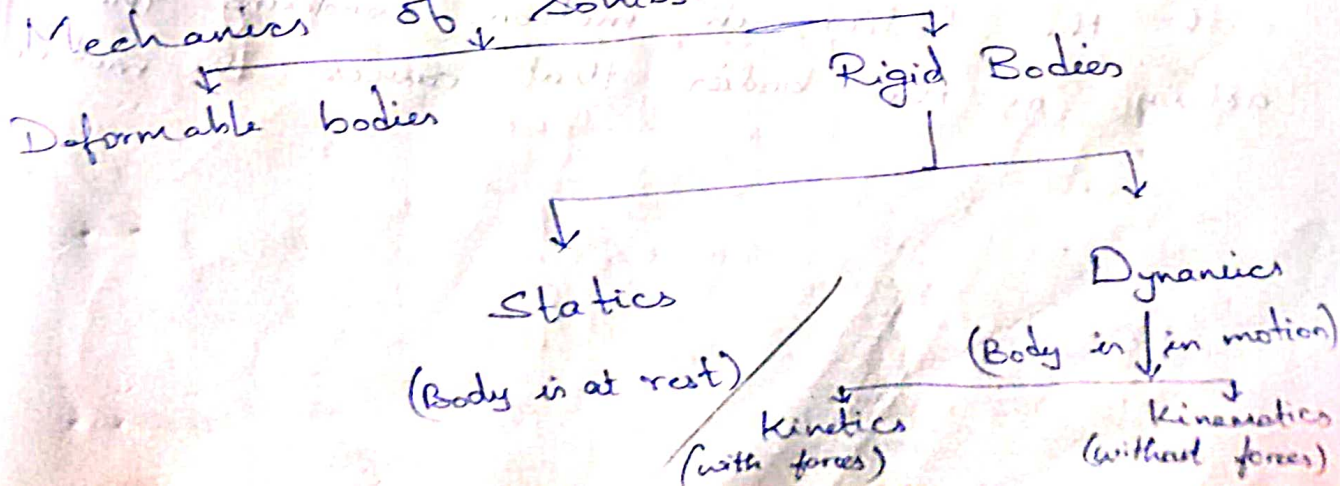 Mechanics of Solids
Deformable bodies
Rigid Bodies
Statics
(Body is at rest)
Dynamics
(Body is in motion)
Kinetics
(with forces)
Kinematics
(without forces)